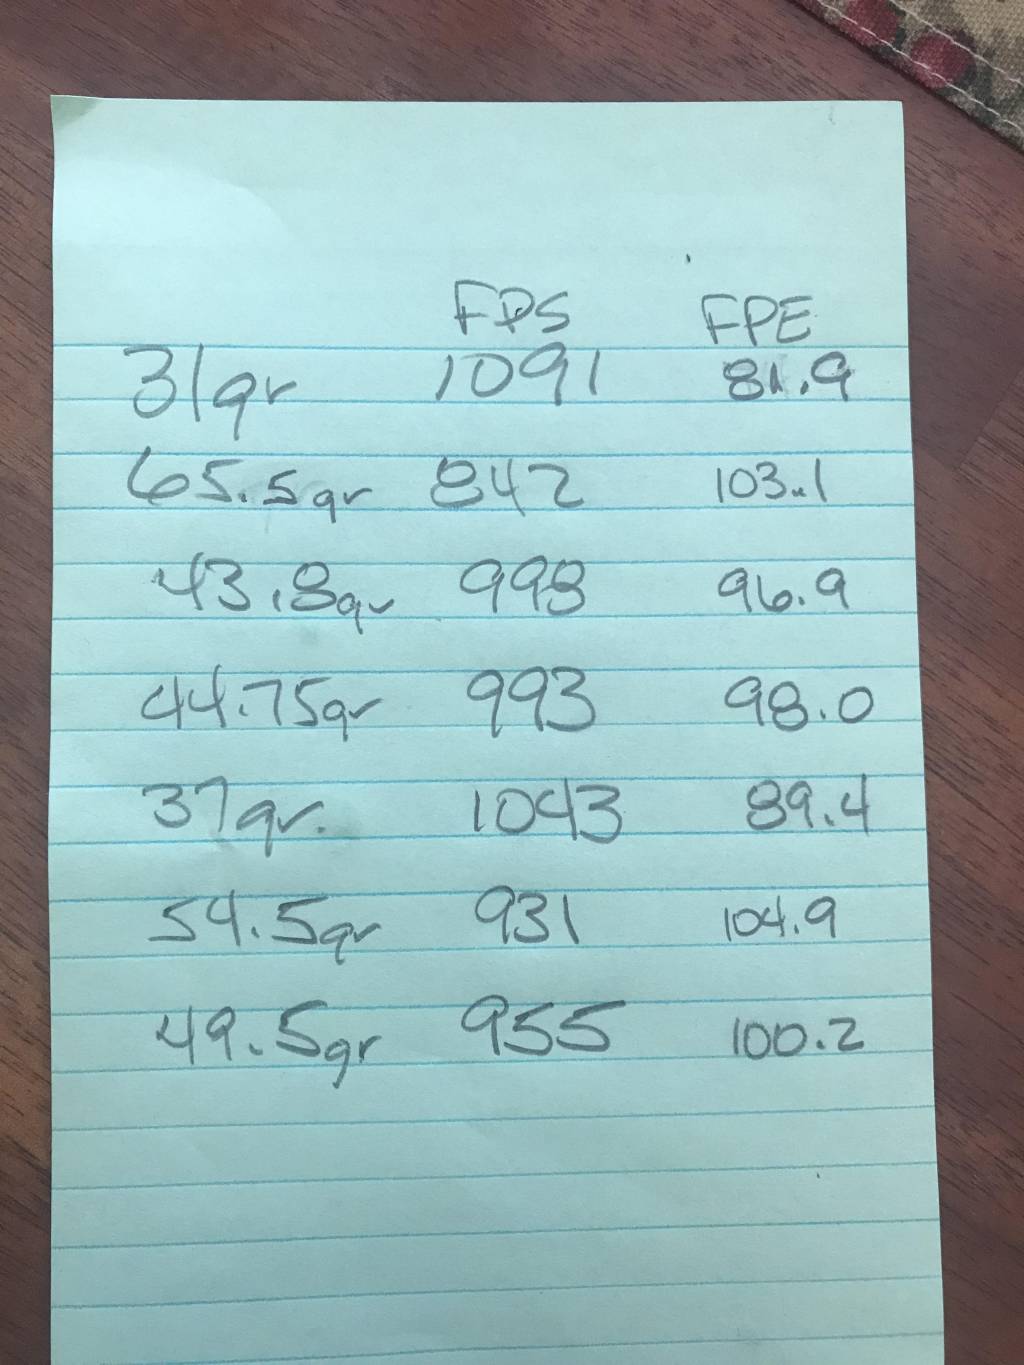 FPS FPE
31gr 1091 81.9
65.5gr 842 103.1
43.8gr 998 96.9
44.75gr 993 98.0
37gr. 1043 89.4
54.5gr 931 104.9
49.5gr 955 100.2